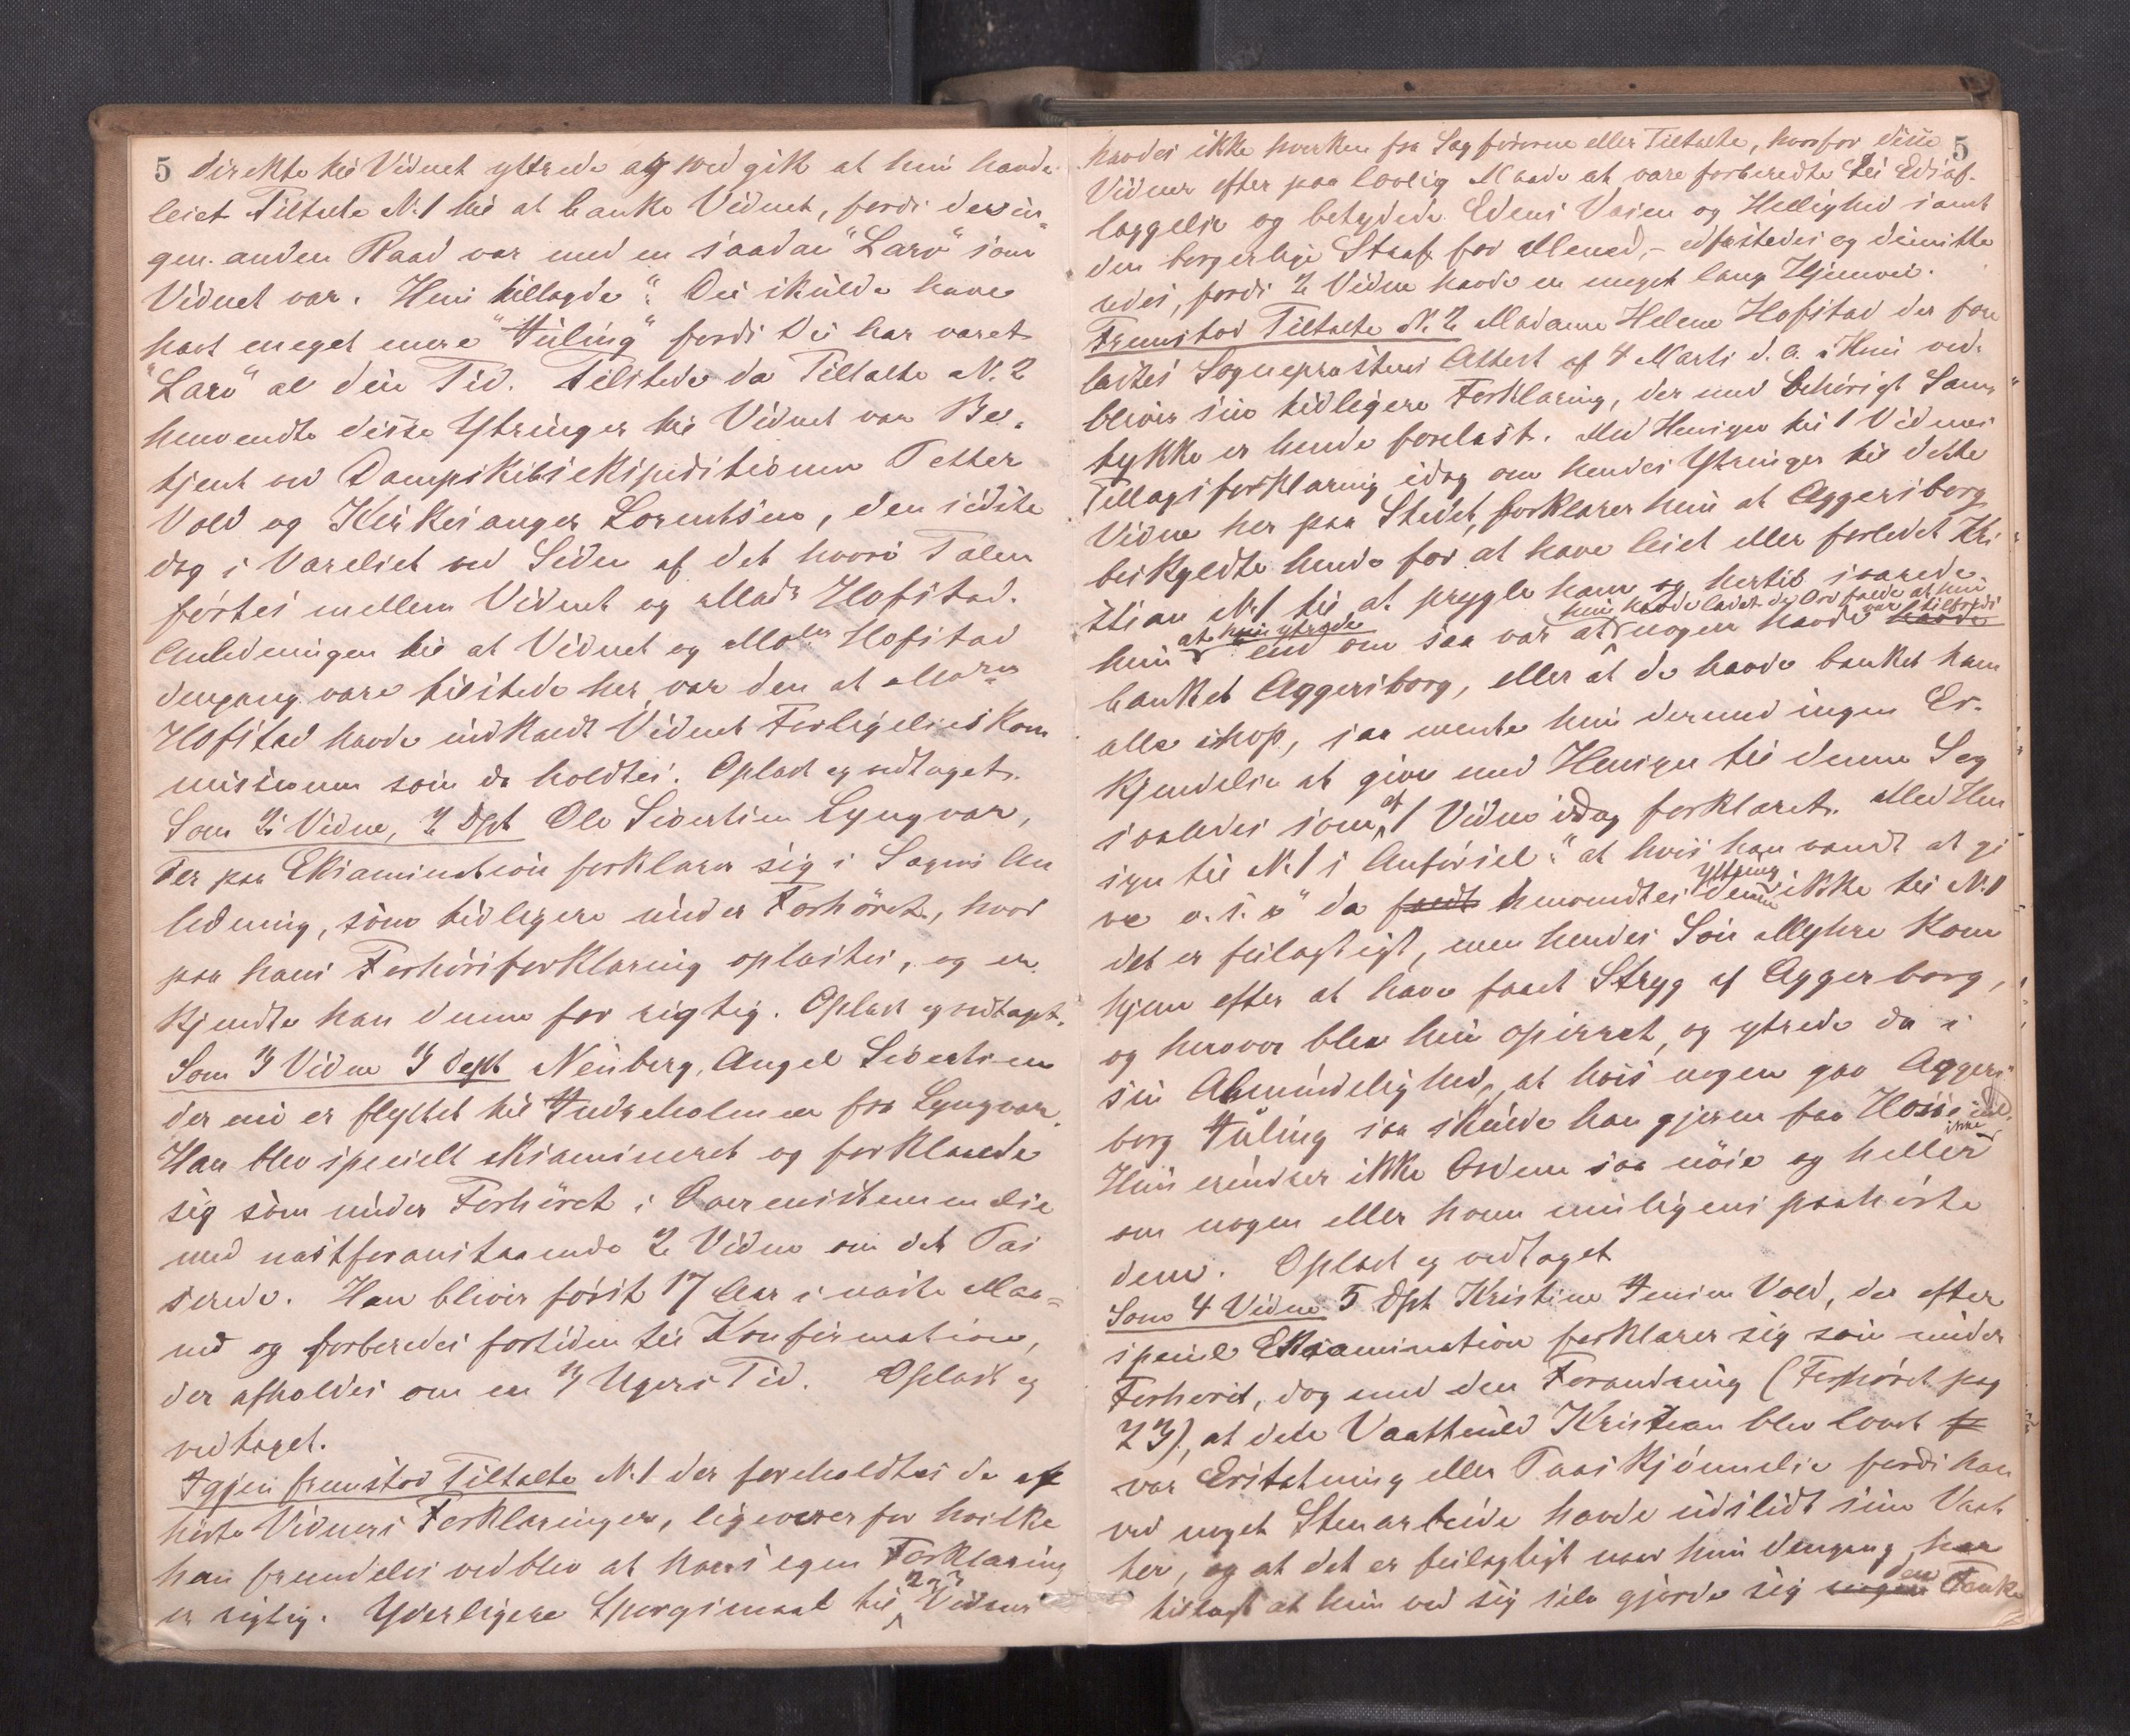 5 direkte til Vidnet yttrede og vedgik at hun havde
leiet Tiltalte N. 1 til at banke Vidnet, fordi der in
gen anden Raad var med en saadan "Larv" som
Vidnet var. Hun tillagde: "Du skulde have
havt meget mere "Juling" fordi Du har været
"Larv" al din Tid. Tilstede da Tiltalte N. 2
henvendte disse Ytringer til Vidnet var Be-
tjent ved Dampskibsekspeditionen Petter
Vold og Kirkesanger Lorentsen, den sidste
dog i Værelset ved Siden af det hvori Talen
førtes mellem Vidnet og Mad. Hofstad.
Anledningen til at Vidnet og Mad. Hofstad
dengang vare tilstede her, var den at Mad.
Hofstad havde indkaldt Vidnet Forligelseskom
missionen som da holdtes. Oplæst og vedtaget.
Som 2 Vidne, 2 Dpt Ole Sivertsen Lyngvær,
der paa Eksamination forklarer sig i Sagens An
ledning, som tidligere under Forhøret, hvor
paa hans Forhørsforklaring oplæstes, og er
kjendte han denne for rigtig. Oplæst og vedtaget.
Som 3 Vidne 3 Dept Neuberg Angel Sivertsen
der nu er flyttet til Indreholmen fra Lyngvær.
Han blev specielt eksamineret og forklarede
sig som under Forhøret i Overensstemmelse
med næstforanstaaende 2 Vidne om det Pas
serede. Han bliver først 17 Aar i næste Maa=
ned og forberedes fortiden til Konfirmation,
der afholdes om en 3 Ugers Tid. Oplæst og
vedtaget.
Igjen fremstod Tiltalte N. 1 der foreholdtes de af
hørte Vidners Forklaringer, ligeoverfor hvilke
han fremdeles vedblev at hans egen Forklaring
er rigtig. Yderligere Spørgsmaal til 2 og 3 Vidner
havdes ikke hverken fra Sagførerne eller Tiltalte, hvorfor disse 5
Vidner efter paa lovlig Maade at være forberedte til Edsaf-
læggelse og betydede Edens Væsen og Hellighed samt
den borgerlige Straf for Mened,- edfæstedes og dimitte
redes, fordi 2 Vidne havde en meget lang Hjemvei.
Fremstod Tiltalte N. 2 Madame Helene Hofstad der fore
lagdes Sogneprestens Attest af 4 Marts d. A. Hun ved-
bliver sin tidligere Forklaring, der med behørigt Sam
tykke er hende forelæst. Med Hensyn til 1 Vidnes
Tillægsforklaring idag om hendes Ytringer til dette
Vidne her paa Stedet, forklarer hun at Aggersborg
beskyldte hende for at have leiet eller forledet Kri
stian N. 1 til at prygle ham og hertil svarede
hun at hun ytrede end om saa var at hun havde ladet de Ord falde at hun var tilfreds nogen havde havde
banket Aggersborg, eller at de havde banket ham
alle ihop, saa mente hun dermed ingen Er-
kjendelse at give med Hensyn til denne Sag
saaledes som af 1 Vidne idag forklaret. Med Hen
syn til N. 1 s Anførsel: "at hvis han vandt at gi
ve o. s. v" da henvendtes denne Yttring ikke til N. 1
det er feilagtigt, men hendes Søn Myhre kom
hjem efter at have faaet Stryg af Aggerborg,
og herover blev hun opirret, og ytrede da i
sin Almindelighed, at hvis nogen gav Aggers
borg Juling saa skulde han gjerne faa
Hun erindrer ikke Ordene saa nøie og heller ikke
om nogen eller hvem muligens paahørte
dem. Oplæst og vedtaget
Som 4 Vidne 5 Dpt Kristine Jensen Vold, der efter
speciel Eksamination forklarer sig som under
Forhøret, dog med den Forandring (Forhøret pag
23), at dette Vaattøild Kristian blev lovet
var Erstatning eller Paaskjønnelse fordi han
ved noget Stenarbeide havde udslidt sine Vaat
ter, og at det er feilagtigt naar hun dengang har
tillagt at hun ved sig selv gjorde sig den Tanke